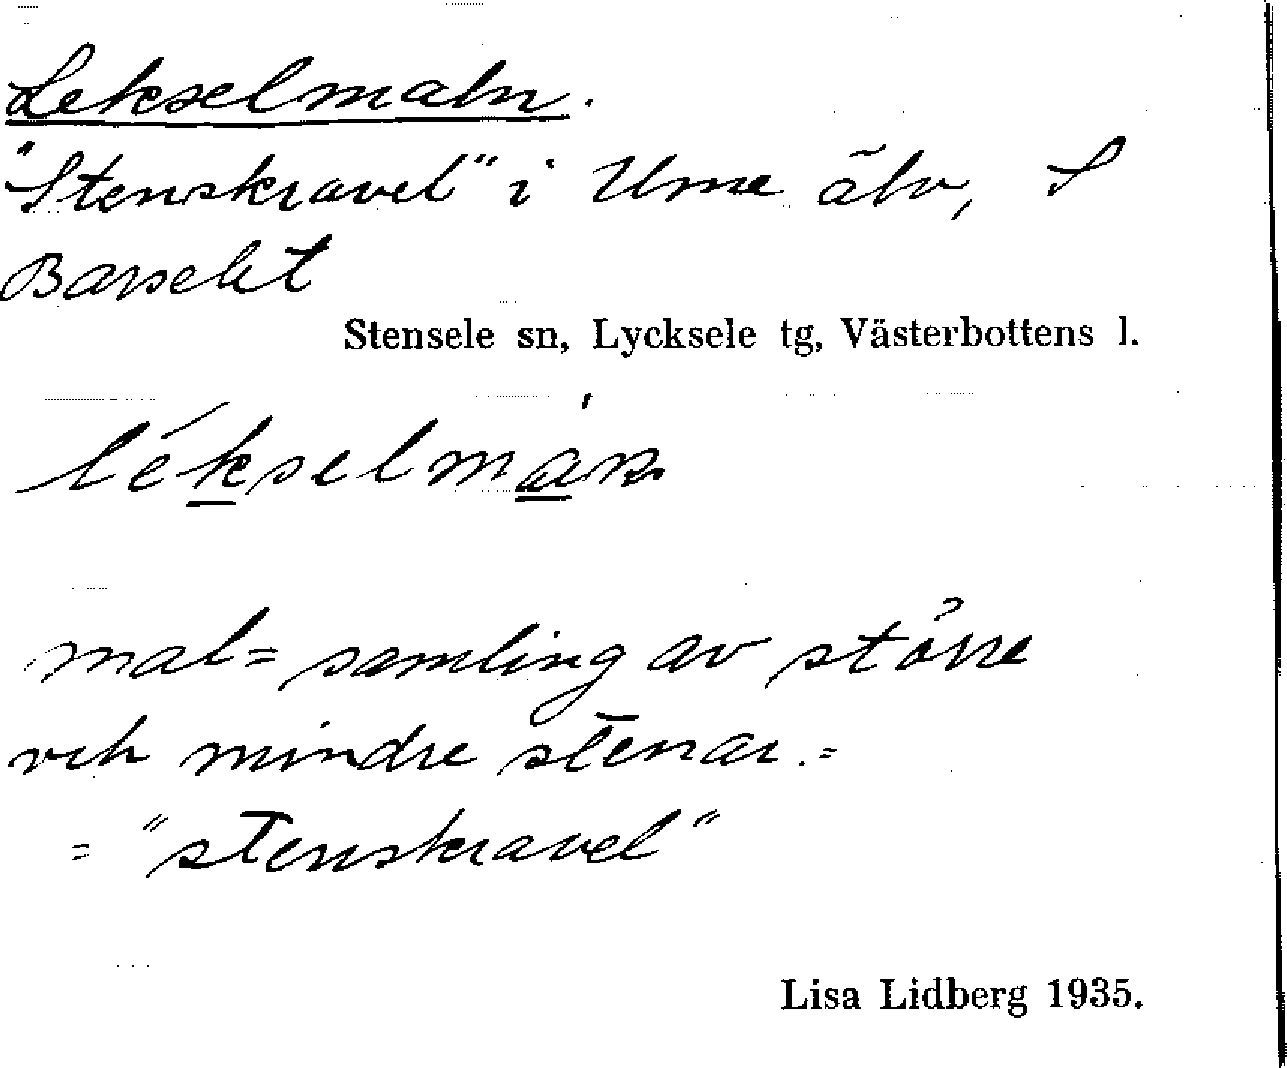 Lekselmaln.
"Stenskravel" i Ume älv, S
Barselet
Stensele sn, Lycksele tg, Västerbottens l.
lékselmáɳ
mal = samling av större
och mindre stenar. =
= "stenskravel"
Lisa Lidberg 1935.